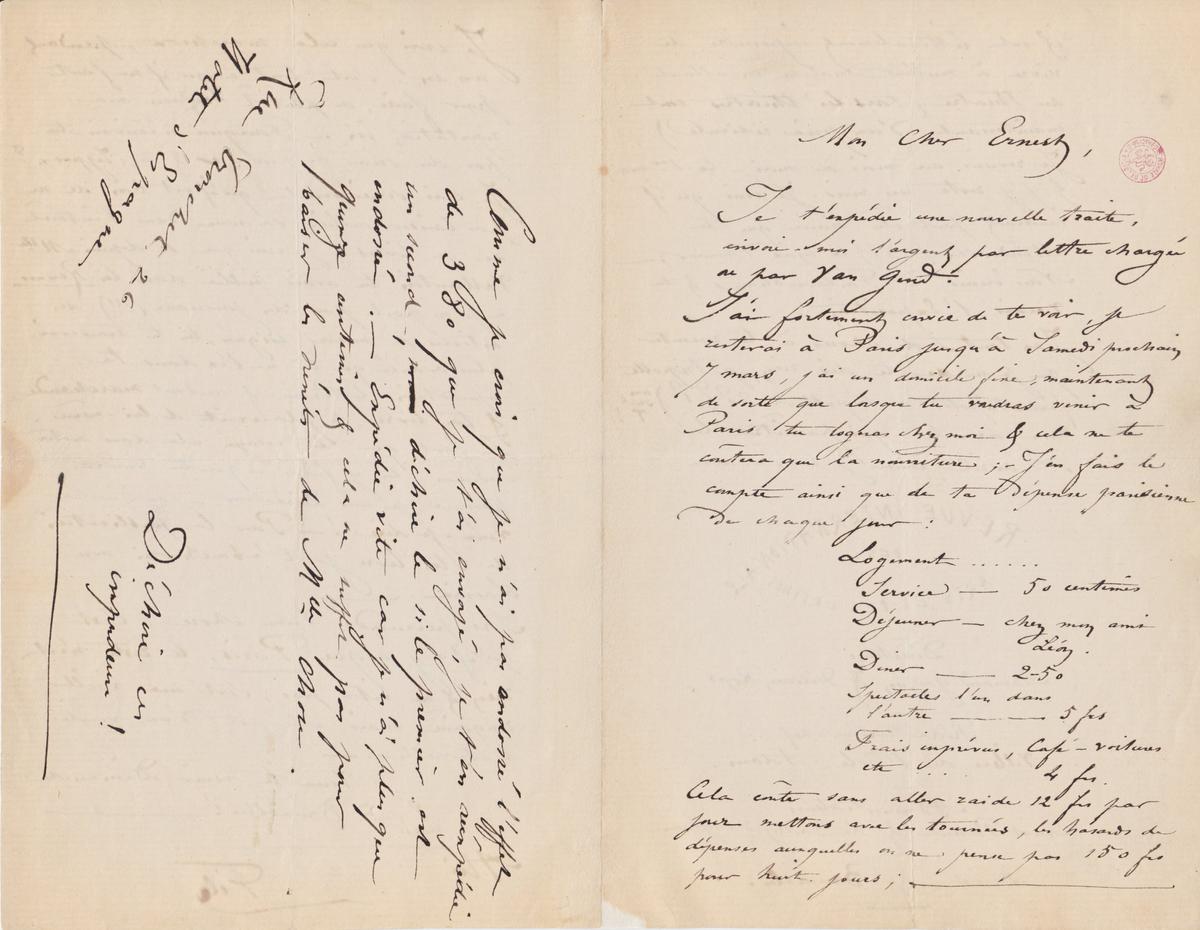 Mon Cher Ernest,
Je t'expédie une nouvelle traite,
envoie-moi l'argent par lettre chargée
ou par Van Gend.
J'ai fortement envie de te voir, je
resterai à Paris jusqu'à Samedi prochain
7 mars, j'ai un domicile fixe, maintenant
de sorte que lorsque tu voudras venir à
Paris tu logeras chez moi & cela ne te
coûtera que la nourriture ; - J'en fais le
compte ainsi que de ta dépense parisienne
de chaque jour :
Logement ......
Service — 50 centimes
Déjeuner — chez mon ami
Léon.
Diner — 2-50
Spectacles l'un dans
l'autre — 5 frs
Frais imprévus, Café - voitures
etc .. . 4 frs.
Cela coûte sans aller raide 12 frs par
jour mettons avec les tournées, les hasards de
dépenses auxquelles on ne pense pas 150 frs
pour huit jours ;
Comme je crois que je n'ai pas endossé l'effet
de 380 que je t'ai envoyé, je t'en réexpédie
un second, déchire le si le premier est
endossé. — Expédie vite car je n'ai plus que
quinze centimes & cela ne suffit pas pour
baiser les nénets de Mlle Chou.
Rue Tronchet 26
Hotel s'E
Déchire ces
impudeurs !